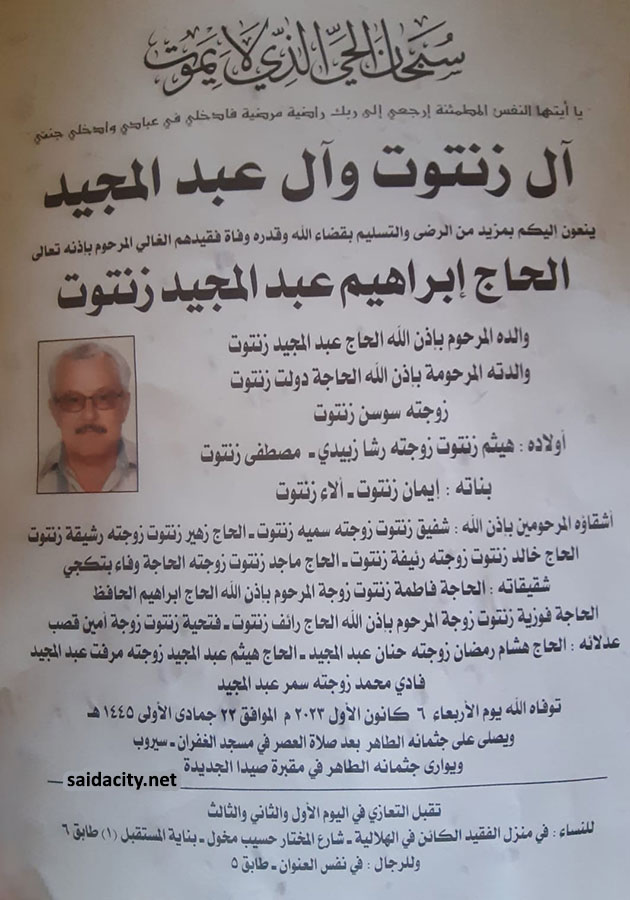 سبحان الحي الذي لا يموت
يا أيتها النفس المطمئنة إرجعي إلى ربك راضية مرضية فادخلي في عبادي وادخلي جنتي
آل زنتوت وآل عبد المجيد
ينعون اليكم بمزيد من الرضى والتسليم بقضاء الله وقدره وفاة فقيدهم الغالي المرحوم بإذنه تعالى
الحاج إبراهيم عبد المجيد زنتوت
والده المرحوم بإذن الله الحاج عبد المجيد زنتوت
والدته المرحومة بإذن الله الحاجة دولت زنتوت
زوجته سوسن زنتوت
أولاده : هيثم زنتوت زوجته رشا زبيدي - مصطفى زنتوت
بناته : إيمان زنتوت - ألاء زنتوت
أشقاؤه المرحومين باذن الله : شفيق زنتوت زوجته سميه زنتوت - الحاج زهير زنتوت زوجته رشيقة زنتوت
الحاج خالد زنتوت زوجته رئيفة زنتوت - الحاج ماجد زنتوت زوجته الحاجة وفاء بتكجي
شقيقاته : الحاجة فاطمة زنتوت زوجة المرحوم بإذن الله الحاج ابراهيم الحافظ
الحاجة فوزية زنتوت زوجة المرحوم بإذن الله الحاج رائف زنتوت - فتحية زنتوت زوجة أمين قصب
عدلائه : الحاج هشام رمضان زوجته حنان عبد المجيد - الحاج هيثم عبد المجيد زوجته مرفت عبد المجيد
فادي محمد زوجته سمر عبد المجيد
توفاه الله يوم الأربعاء ٦ كانون الأول ٢٠٢٣ م الموافق ٢٢ جمادى الأولى ١٤٤٥ هـ
ويصلى على جثمانه الطاهر بعد صلاة العصر في مسجد الغفران - سيروب
ويوارى جثمانه الطاهر في مقبرة صيدا الجديدة
saidacity.net
تقبل التعازي في اليوم الأول والثاني والثالث
للنساء : في منزل الفقيد الكائن في الهلالية - شارع المختار حسيب مخول - بناية المستقبل (١) طابق ٦
وللرجال : في نفس العنوان - طابق ٥